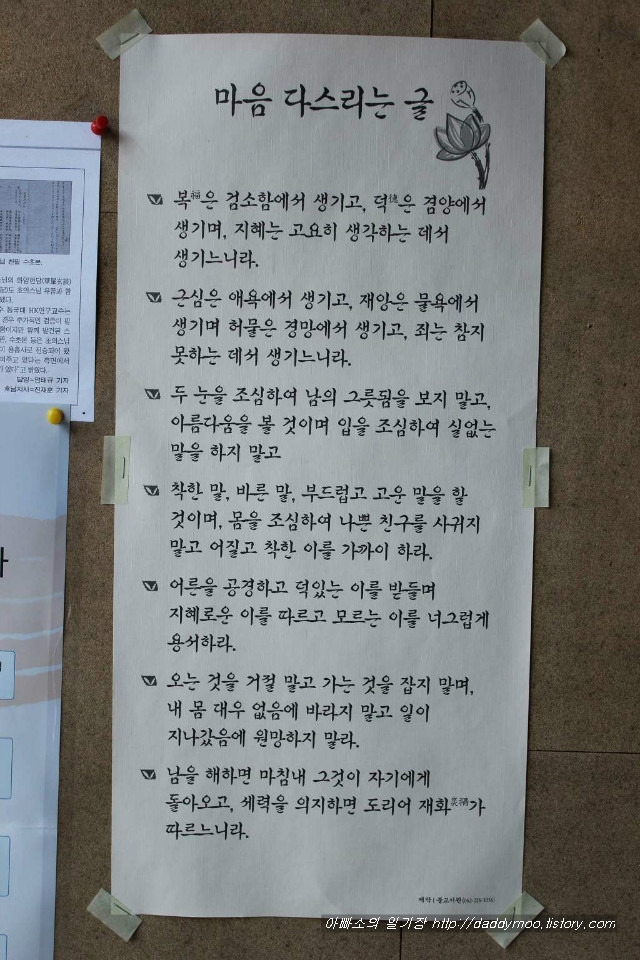 마음 다스리는 글
복福은 검소함에서 생기고, 덕德은 겸양에서
생기며, 지혜는 고요히 생각하는 데서
생기느니라.
근심은 애욕에서 생기고, 재앙은 물욕에서
생기며 허물은 경망에서 생기고, 죄는 참지
못하는 데서 생기느니라.
두 눈을 조심하여 남의 그릇됨을 보지 말고,
아름다움을 볼 것이며 입을 조심하여 실없는
말을 하지 말고
착한 말, 바른 말, 부드럽고 고운 말을 할
것이며, 몸을 조심하여 나쁜 친구를 사귀지
말고 어질고 착한 이를 가까이 하라.
어른을 공경하고 덕있는 이를 받들며
지혜로운 이를 따르고 모르는 이를 너그럽게
용서하라.
오는 것을 거절 말고 가는 것을 잡지 말며,
내 몸 대우 없음에 바라지 말고 일이
지나갔음에 원망하지 말라.
남을 해하면 마침내 그것이 자기에게
돌아오고, 세력을 의지하면 도리어 재화災禍가
따르느니라.
아빠소의 일기장 http://daddymoo.tistory.com